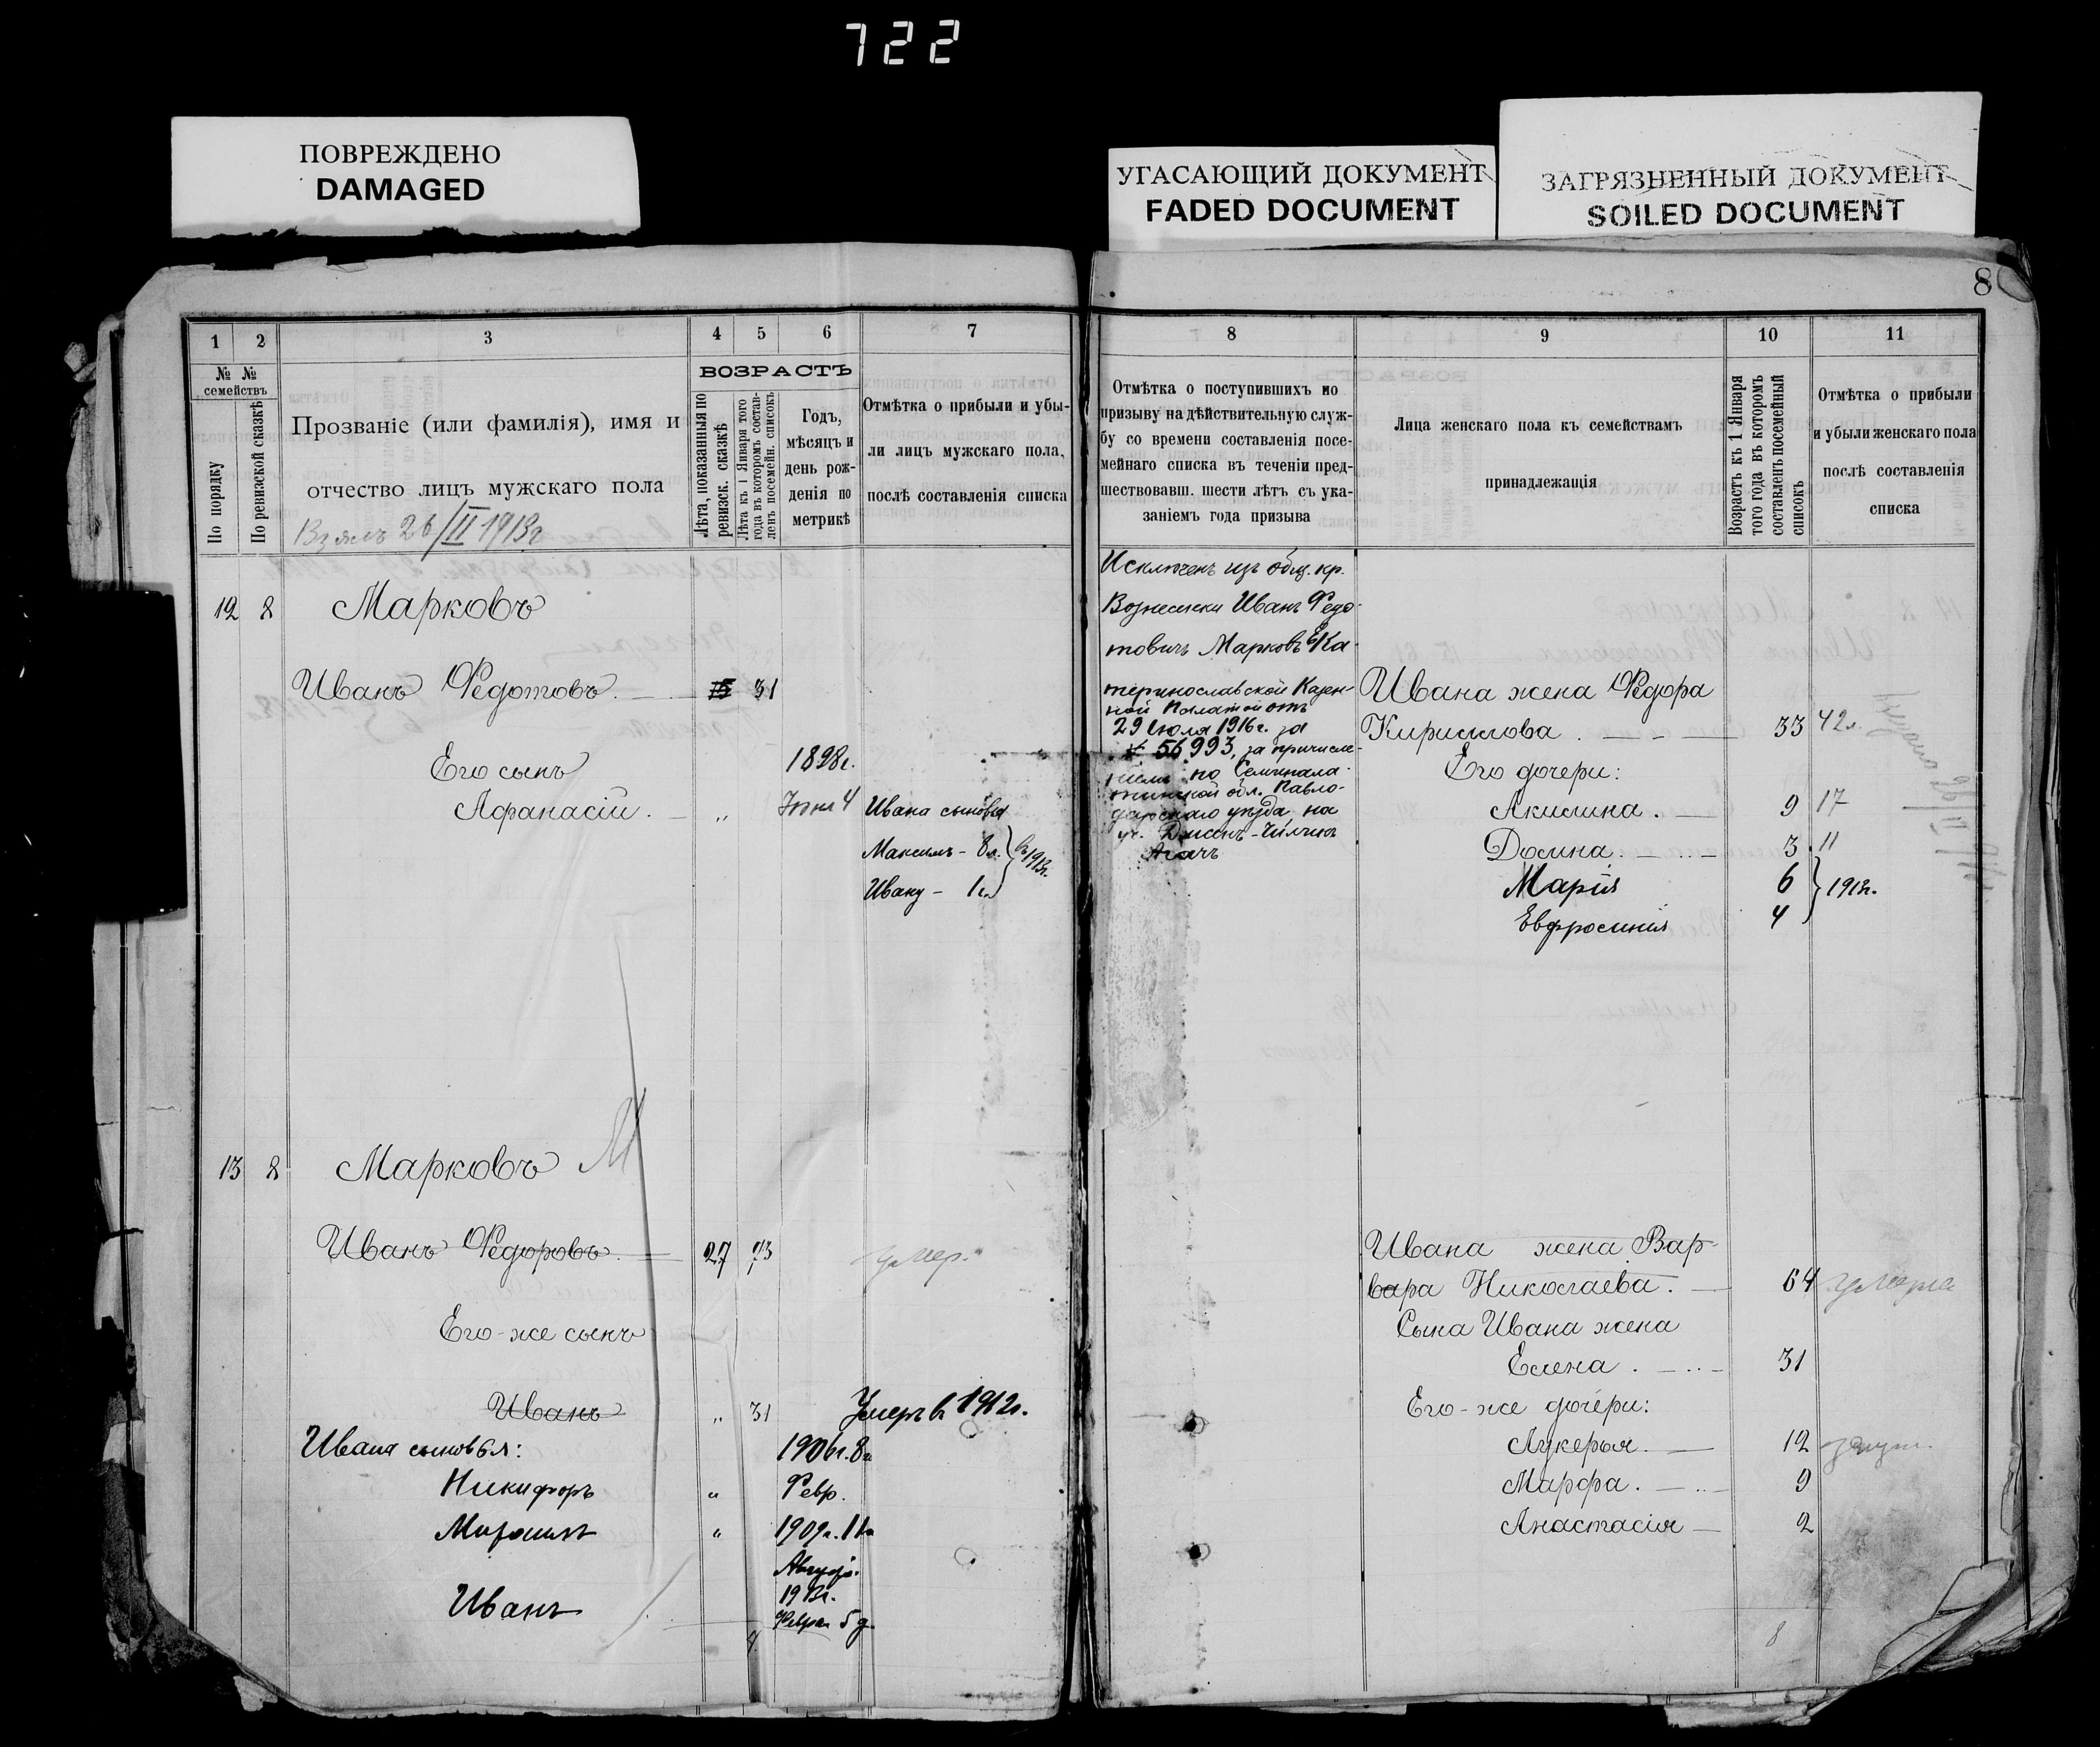 722
ПОВРЕЖДЕНО
DAMAGED
УГАСАЮЩИЙ ДОКУМЕНТ
FADED DOCUMENT
ЗАГРЯЗНЕННЫЙ ДОКУМЕНТ
SOILED DOCUMENT
8
1 2 3 4 5 6 7
№ № семействъ
По порядку
По ревизской сказкѣ
Прозваніе (или фамилія), имя и
отчество лицъ мужскаго пола
Взялъ 26/II 1913г
ВОЗРАСТЪ
Лѣта, показанныя по ревизск. сказкѣ
Лѣта къ 1 Января того года въ которомъ составленъ посемейн. списокъ
Годъ,
мѣсяцъ и
день рож-
денія по
метрикѣ
Отмѣтка о прибыли и убы-
ли лицъ мужскаго пола,
послѣ составленія списка
12 8 Марковъ
Иванъ Федотовъ. 15 31
Его сынъ 1898г.
Афанасій. „ 4 Ивана сыновья
Максимъ - 8л. } въ 1913г.
Ивану - 1г.
13 8 Марковъ М
Иванъ Федоровъ. 27 73 умер.
Его-же сынъ
Иванъ „ 31 Умеръ въ 1912г.
Ивана сыновья: 1906г. 8
Никифоръ „ Февр.
„ 1909г. 11
Август.
Иванъ 1913г.
Феврал 5 д.
8 9 10 11
Отмѣтка о поступившихъ по
призыву на дѣйствительную служ-
бу со времени составленія посе-
мейнаго списка въ теченіи пред-
шествовавш. шести лѣтъ съ ука-
заніемъ года призыва
Лица женскаго пола къ семействамъ
принадлежащія
Возрастъ къ 1 Января того года въ которомъ составленъ посемейный списокъ
Отмѣтка о прибыли
и убыли женскаго пола
послѣ составленія
списка
Исключенъ изъ общ. кр.
Вознесенки Иванъ Федо-
товичъ Марковъ Ека-
теринославской Казен-
ной Палатой отъ
29 Июля 1916г. за
№ 56993, за причисле-
ніемъ по Семипала-
тинской обл. Павло-
дарскаго уѣзда, на
уч.
Агачъ
Ивана жена Федора
Кирилова. 33 42л.
Его дочери:
Акилина. 9 17
Домна. 3 11
Марія 6 } 1913г.
Евфросинія 4
Ивана жена Вар-
вара Николаева. 64 умерла
Сына Ивана жена
Елена. 31
Его-же дочери:
Лукерья. 12 замуж.
Марфа. 9
Анастасія 2
8